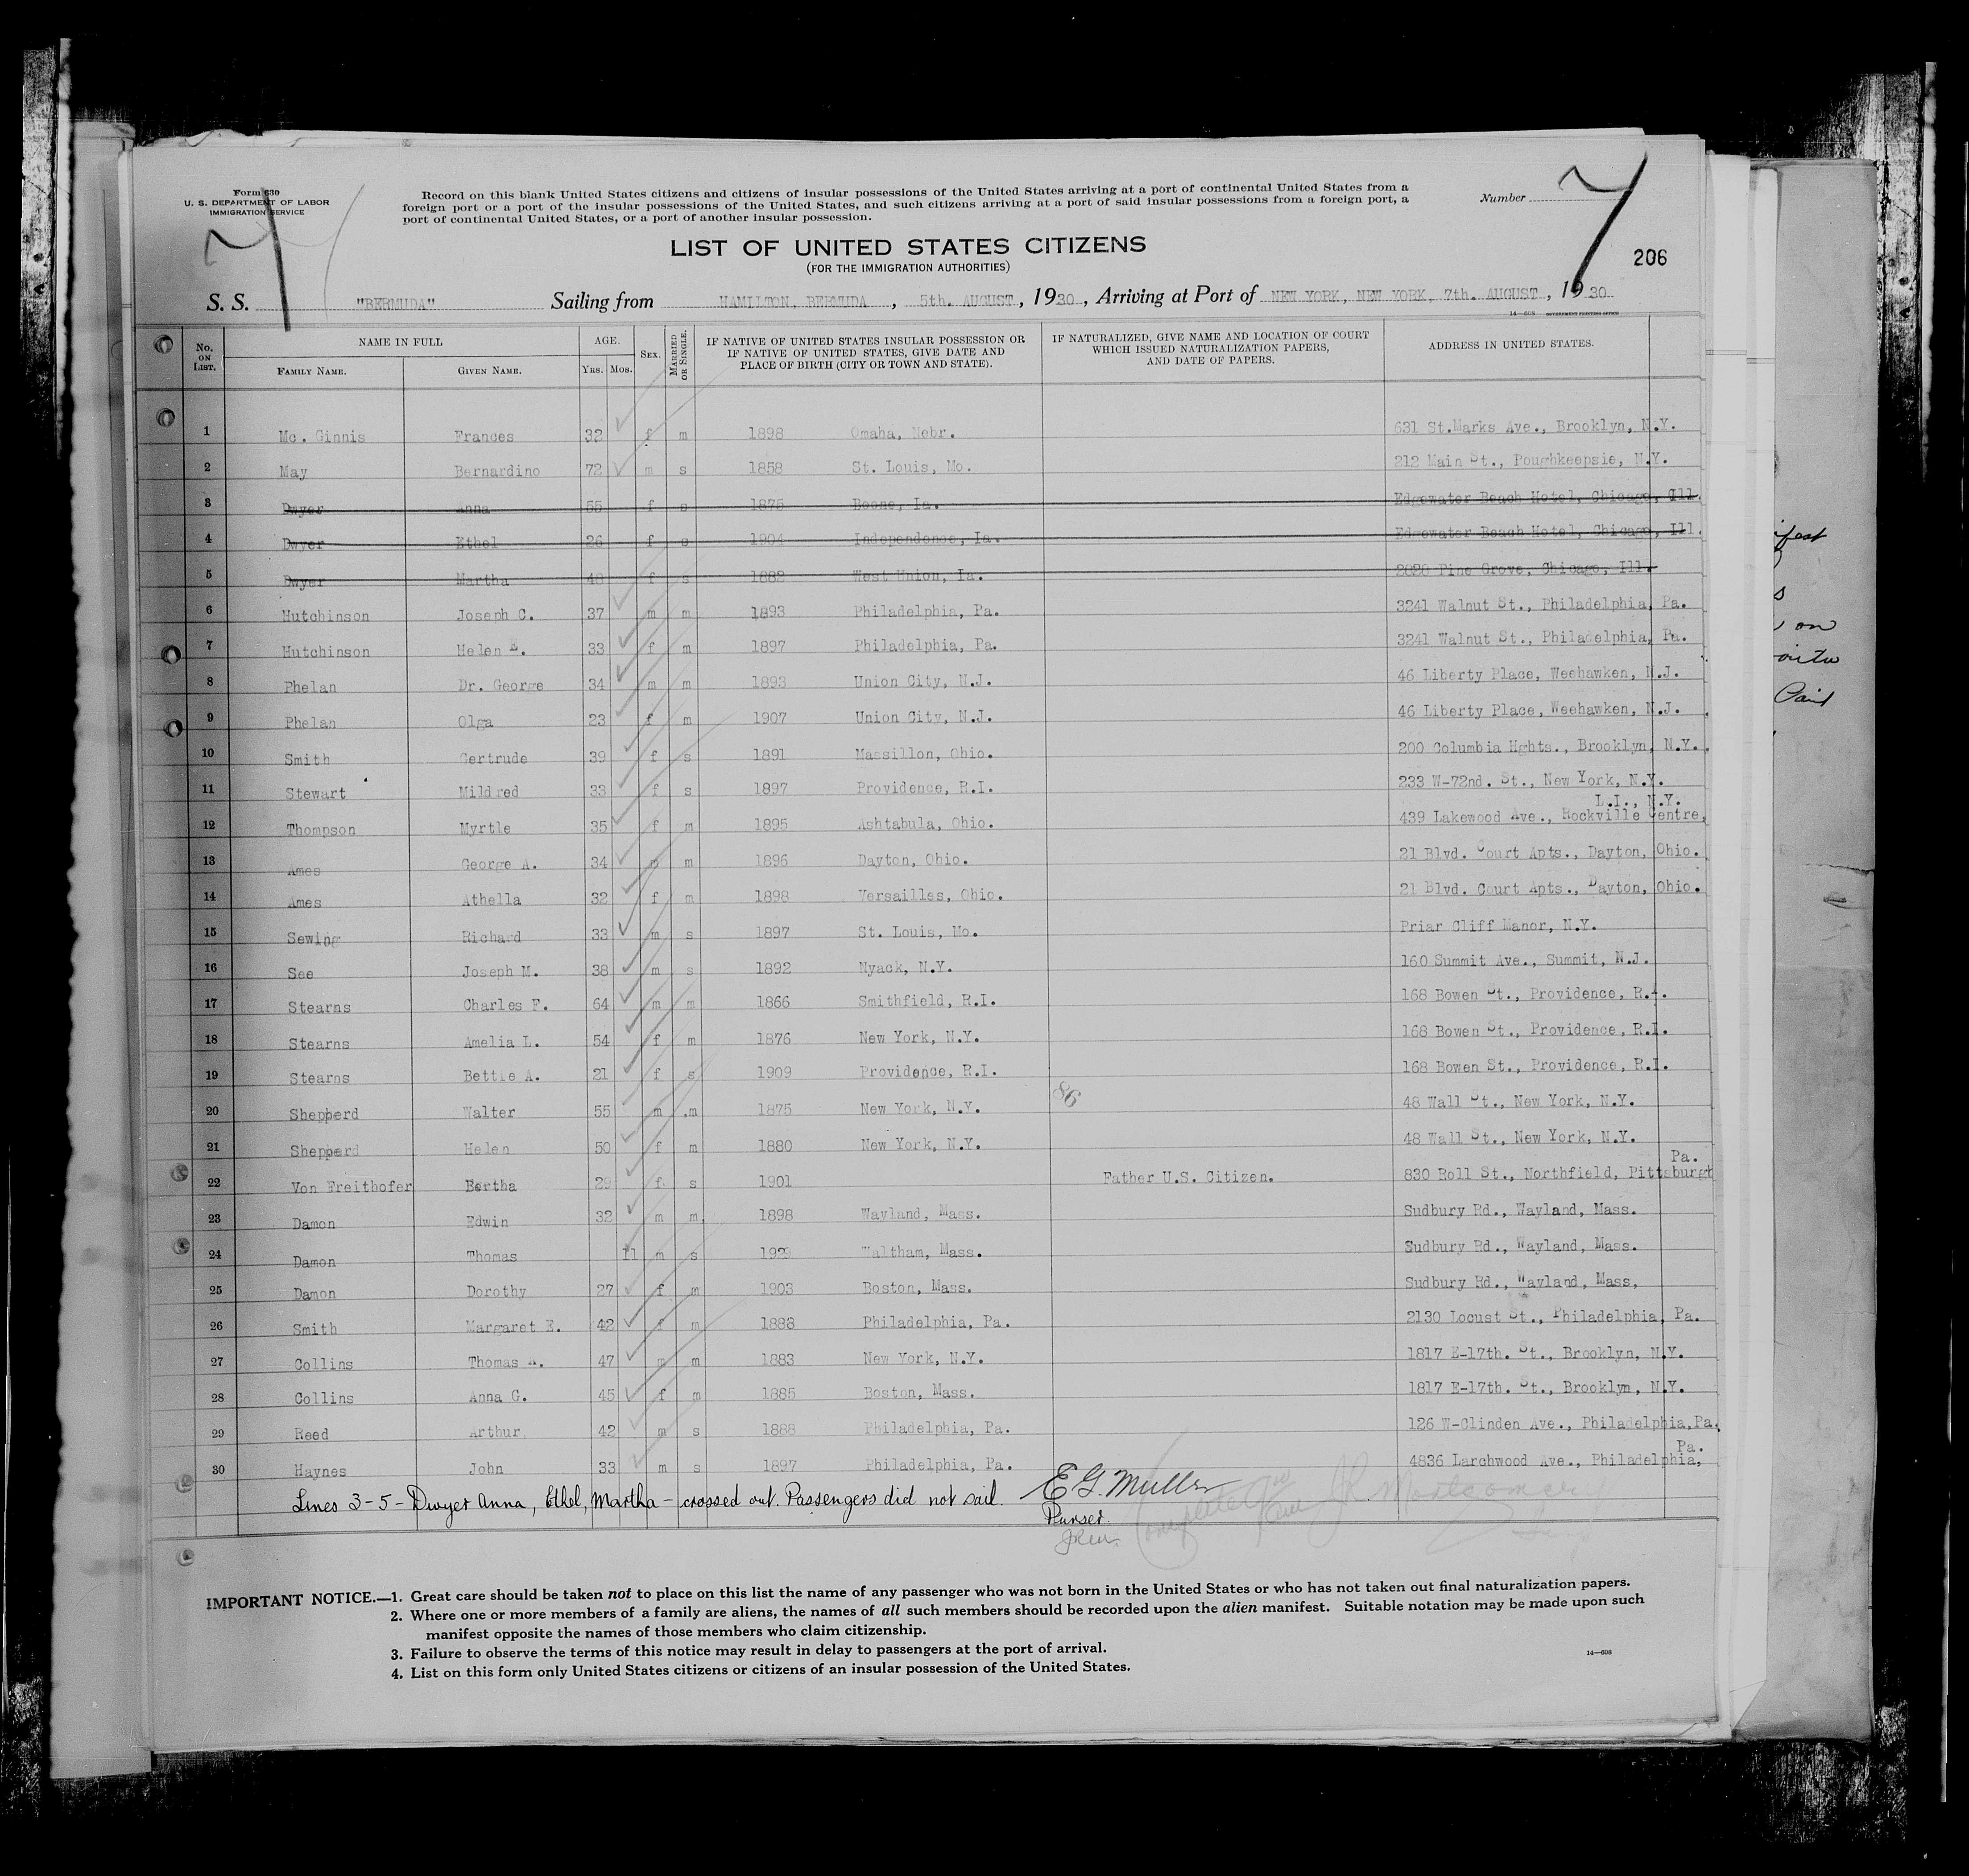 Form 630
U. S. DEPARTMENT OF LABOR
IMMIGRATION SERVICE
Record on this blank United States citizens and citizens of insular possessions of the United States arriving at a port of continental United States from a
foreign port or a port of the insular possessions of the United States, and such citizens arriving at a port of said insular possessions from a foreign port, a
port of continental United States, or a port of another insular possession.
Number 7
7
206
LIST OF UNITED STATES CITIZENS
(FOR THE IMMIGRATION AUTHORITIES)
S. S. "BERMUDA" Sailing from HAMILTON, BERMUDA, 5th. AUGUST, 1930, Arriving at Port of NEW YORK, NEW YORK, 7th. AUGUST, 1930
14—608 GOVERNMENT PRINTING OFFICE
No. ON LIST. NAME IN FULL FAMILY NAME. GIVEN NAME. AGE. YRS. MOS. SEX. MARRIED OR SINGLE. IF NATIVE OF UNITED STATES INSULAR POSSESSION OR IF NATIVE OF UNITED STATES, GIVE DATE AND PLACE OF BIRTH (CITY OR TOWN AND STATE). IF NATURALIZED, GIVE NAME AND LOCATION OF COURT WHICH ISSUED NATURALIZATION PAPERS, AND DATE OF PAPERS. ADDRESS IN UNITED STATES.
1 Mc. Ginnis Frances 32 f m 1898 Omaha, Nebr. 631 St.Marks Ave., Brooklyn, N.Y.
2 May Bernardino 72 m s 1858 St. Louis, Mo. 212 Main St., Poughkeepsie, N.Y.
3 Dwyer Anna 55 f s 1875 Boone, Ia. Edgewater Beach Hotel, Chicago, Ill.
4 Dwyer Ethel 26 f s 1904 Independence, Ia. Edgewater Beach Hotel, Chicago, Ill.
5 Dwyer Martha 48 f s 1882 West Union, Ia. 2828 Pine Grove, Chicago, Ill.
6 Hutchinson Joseph C. 37 m m 1893 Philadelphia, Pa. 3241 Walnut St., Philadelphia, Pa.
7 Hutchinson Helen E. 33 f m 1897 Philadelphia, Pa. 3241 Walnut St., Philadelphia, Pa.
8 Phelan Dr. George 34 m m 1893 Union City, N.J. 46 Liberty Place, Weehawken, N.J.
9 Phelan Olga 23 f m 1907 Union City, N.J. 46 Liberty Place, Weehawken, N.J.
10 Smith Gertrude 39 f s 1891 Massillon, Ohio. 200 Columbia Hghts., Brooklyn, N.Y.
11 Stewart Mildred 33 f s 1897 Providence, R.I. 233 W-72nd. St., New York, N.Y.
12 Thompson Myrtle 35 f m 1895 Ashtabula, Ohio. 439 Lakewood Ave., Rockville Centre, L.I., N.Y.
13 Ames George A. 34 m m 1896 Dayton, Ohio. 21 Blvd. Court Apts., Dayton, Ohio.
14 Ames Athella 32 f m 1898 Versailles, Ohio. 21 Blvd. Court Apts., Dayton, Ohio.
15 Sewing Richard 33 m s 1897 St. Louis, Mo. Briar Cliff Manor, N.Y.
16 See Joseph M. 38 m s 1892 Nyack, N.Y. 160 Summit Ave., Summit, N.J.
17 Stearns Charles F. 64 m m 1866 Smithfield, R.I. 168 Bowen St., Providence, R.I.
18 Stearns Amelia L. 54 f m 1876 New York, N.Y. 168 Bowen St., Providence, R.I.
19 Stearns Bettie A. 21 f s 1909 Providence, R.I. 168 Bowen St., Providence, R.I.
20 Shepherd Walter 55 m m 1875 New York, N.Y. 86 48 Wall St., New York, N.Y.
21 Shepperd Helen 50 f m 1880 New York, N.Y. 48 Wall St., New York, N.Y.
22 Von Freithofer Bertha 29 f s 1901 Father U.S. Citizen. 830 Roll St., Northfield, Pittsburgh Pa.
23 Damon Edwin 32 m m 1898 Wayland, Mass. Sudbury Rd., Wayland, Mass.
24 Damon Thomas 11 m s 1929 Waltham, Mass. Sudbury Rd., Wayland, Mass.
25 Damon Dorothy 27 f m 1903 Boston, Mass. Sudbury Rd., Wayland, Mass,
26 Smith Margaret E. 42 f m 1888 Philadelphia, Pa. 2130 Locust St., Philadelphia, Pa.
27 Collins Thomas A. 47 m m 1883 New York, N.Y. 1817 E-17th. St., Brooklyn, N.Y.
28 Collins Anna G. 45 f m 1885 Boston, Mass. 1817 E-17th. St., Brooklyn, N.Y.
29 Reed Arthur 42 m s 1888 Philadelphia, Pa. 126 W-Clinden Ave., Philadelphia, Pa.
30 Haynes John 33 m s 1897 Philadelphia, Pa. 4836 Larchwood Ave., Philadelphia, Pa.
Lines 3-5 - Dwyer Anna, Ethel, Martha - crossed out. Passengers did not sail. E G. Muller
Purser.
IMPORTANT NOTICE.—1. Great care should be taken not to place on this list the name of any passenger who was not born in the United States or who has not taken out final naturalization papers.
2. Where one or more members of a family are aliens, the names of all such members should be recorded upon the alien manifest. Suitable notation may be made upon such
manifest opposite the names of those members who claim citizenship.
3. Failure to observe the terms of this notice may result in delay to passengers at the port of arrival.
4. List on this form only United States citizens or citizens of an insular possession of the United States.
14—608